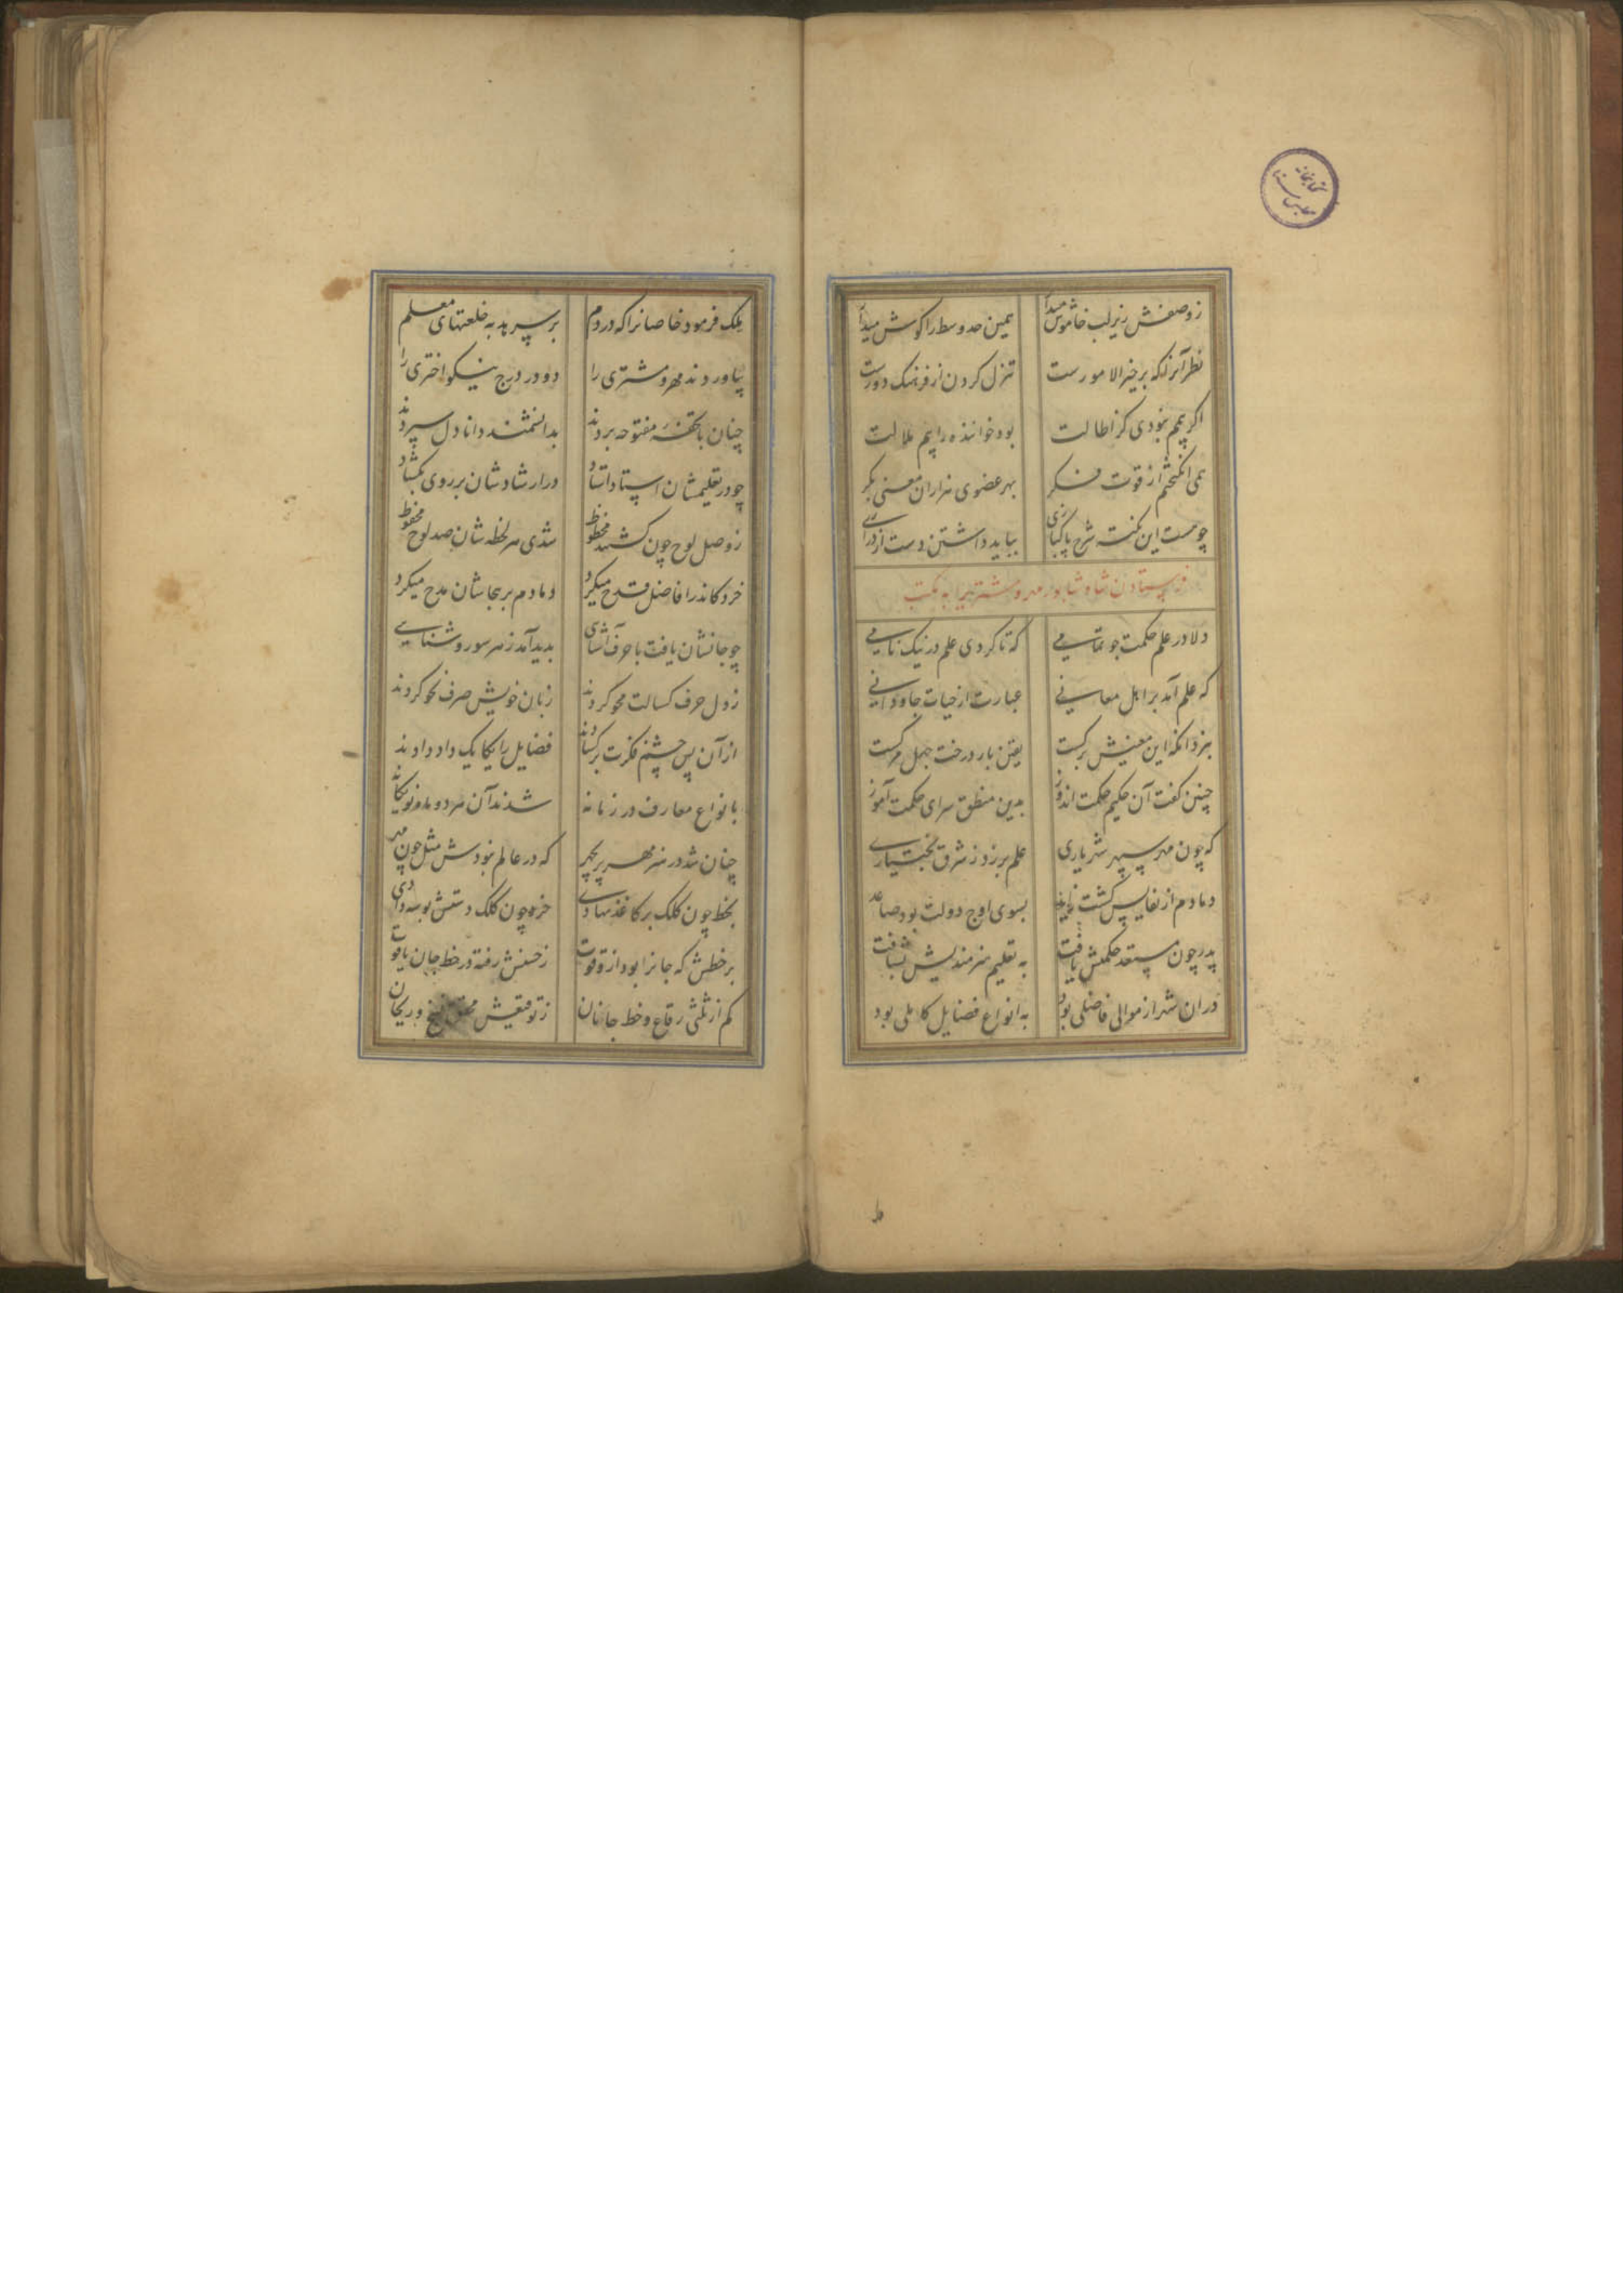 زوصفش زیر لب خاموش میدار همین حد وسط را گوش میدار
نظر آنرا که بر خیر الامورست تنزل کردن از فرهنگ دورست
اگر بیمم نبودی کز اطالت بود خواننده را بیم ملالت
همی انگیختم از قوت فکر بهر عضوی هزاران معنی بکر
چو هست این نکته شرح پاکبازی بباید داشتن دست از درازی
فرستادن شاه شاپور مهر و مشتریرا به مکتب
دلا در علم حکمت جو تمامی که تا گردی علم در نیک نامی
که علم آمد بر اهل معانی عبارت از حیات جاودانی
بنزد آنکه این معنیش برگست یقین بار درخت جهل مرگست
چنین گفت آن حکیم حکمت اندوز بدین منطق سرای حکمت آموز
که چون مهر سپهر شهریاری علم بر زد ز شرق بختیاری
دمادم از نفایس گشت زاید بسوی اوج دولت بود صاعد
پدر چون مستعد حکمتش یافت به تعلیم هنرمندیش بشتافت
دران شهر از موالی فاضلی بود به انواع فضایل کاملی بود
ملک فرمود خاصانرا که دردم برسپرید به خلعتهای معلم
بیاوردند مهر و مشتری را دو در درج نیکو اختری را
چنان با تخته مفتوحه بردند بدانشمند دانا دل سپردند
چو در تعلیمشان استاد استاد در ارشادشان بر روی بگشاد
ز وصل لوح چون گشتند محظوظ شدی هر لحظه شان صد لوح محفوظ
خرد کاندر افاضل قدح میکرد دمادم بر بجاشان مدح میکرد
چو جانشان یافت با حرف آشنایی بدید آمد ز هر سو روشنایی
ز دل حرف کسالت محو کردند زبان خویش صرف نحو کردند
از آن پس چشم فکرت برگشادند فضایل را یکایک داد دادند
بانواع معارف در زمانه شدند آن هر دو مه نو یگانه
چنان شد در هنر مهر پریچهر که در عالم نبودش مثل چون مهر
بخط چون کلک بر کاغذ نهادی خرد چون کلک دستش بوسه دادی
بر خطش که جانرا بود ازو قوت ز حسنش رفته در خط جان یاقوت
کم از ثلثی رقاع و خط جانان ز توقیعش محقق نسخ و ریحان